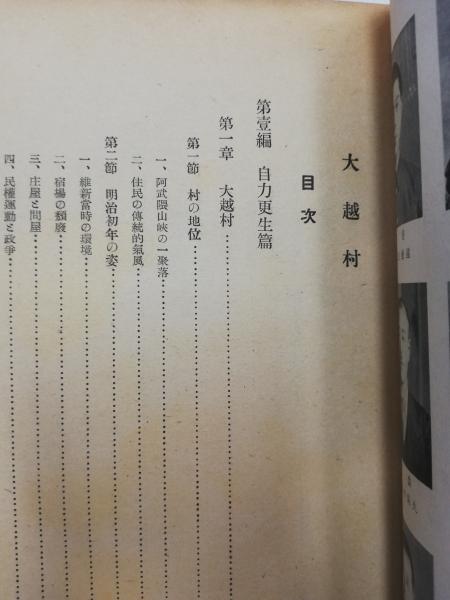 大越村
目次
第壹編 自力更生篇
第一章 大越村
第一節 村の地位
一、阿武隈山峽の一聚落
二、住民の傳統的氣風
第二節 明治初年の姿
一、維新當時の環境
二、宿場の頽廢
三、庄屋と問屋
四、民權運動と政爭